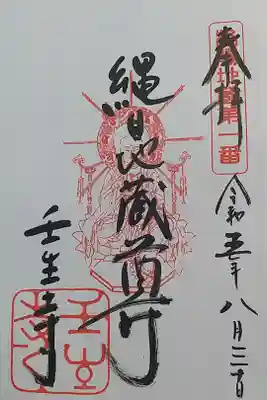 奉拝
第一番
令和五年八月三日
縄目地蔵尊
壬生寺
壬生寺